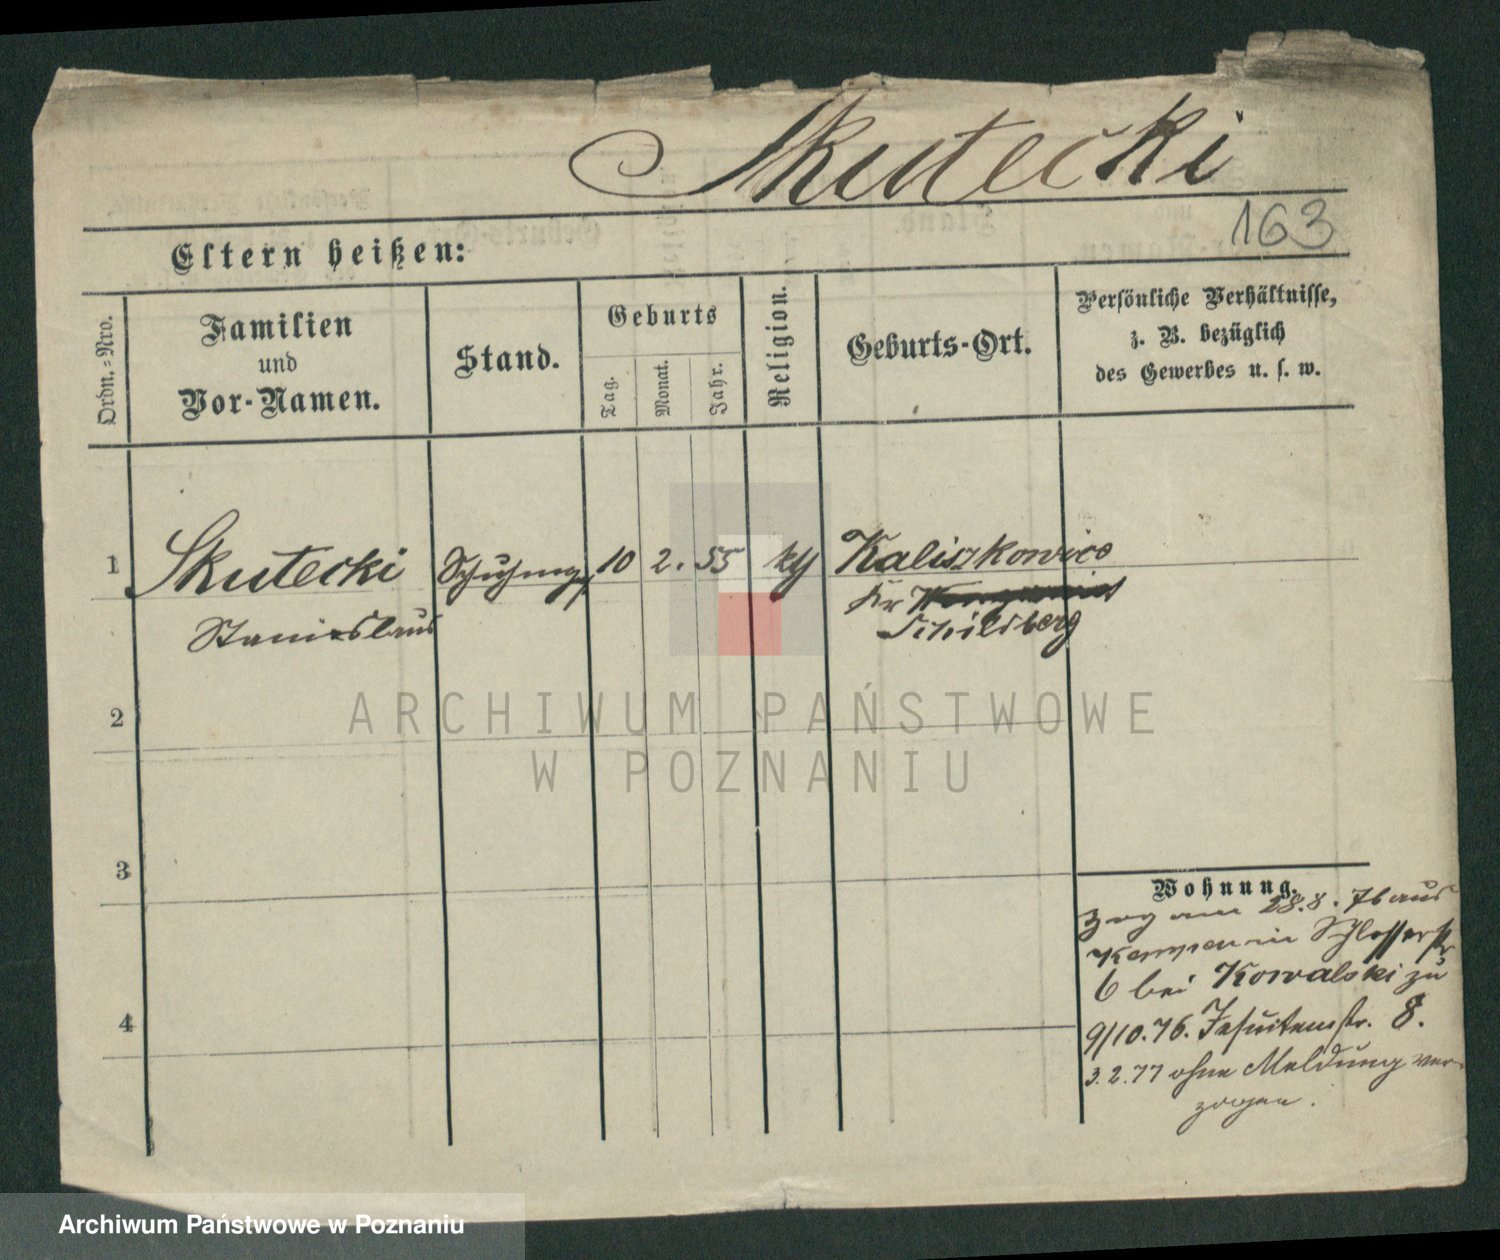 Skutecki
163
Eltern heißen:
Ordn.=Nro.
Familien
und
Vor-Namen.
Stand.
Geburts
Tag.
Monat.
Jahr.
Religion.
Geburts-Ort.
Persönliche Verhältnisse,
z. B. bezüglich
des Gewerbes u. s. w.
1 Skutecki 10 2. 55 Kaliszkowice
Stanislaus
Kr
Schildberg
2
3
4
Wohnung.
Zog am 28.8.76 aus
Kempen in Schlosserstr
6 bei Kowalski zu
9/10.76. Jesuitenstr. 8.
3.2.77 ohne Meldung ver-
zogen.
ARCHIWUM PAŃSTWOWE
W POZNANIU
Archiwum Państwowe w Poznaniu